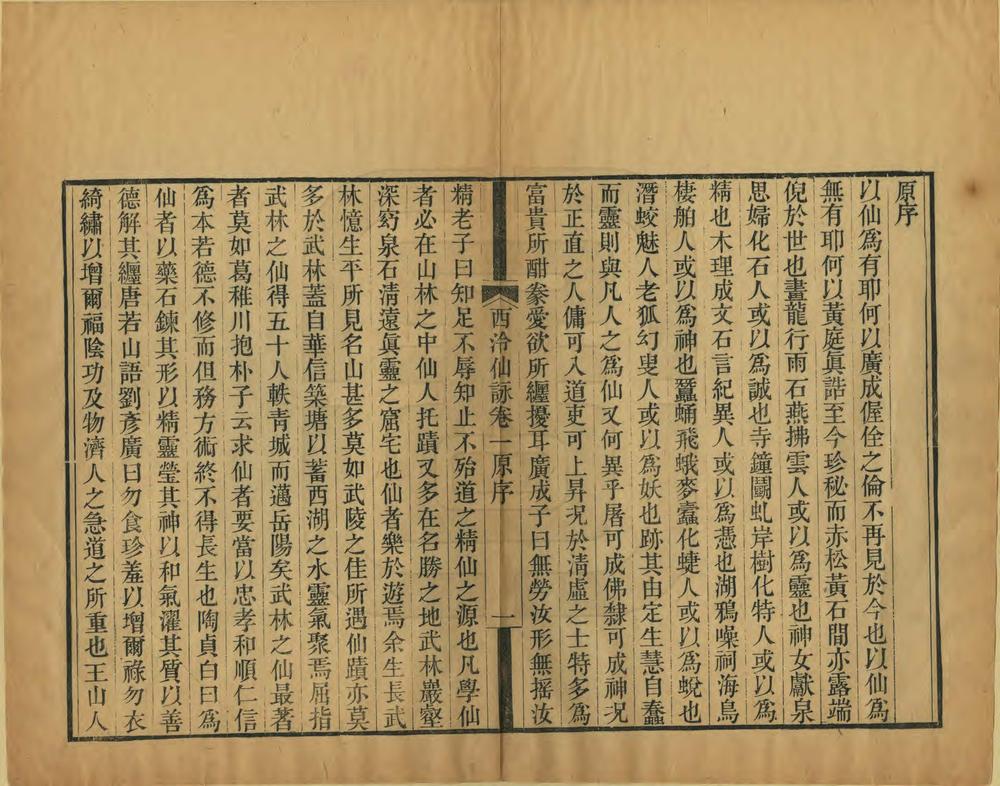 原序
以仙爲有耶何以廣成偓佺之倫不再見於今也以仙爲
無有耶何以黃庭眞誥至今珍秘而赤松黃石間亦露端
倪於世也畫龍行雨石燕拂雲人或以爲靈也神女獻泉
思婦化石人或以爲誠也寺鐘鬬虬岸樹化特人或以爲
精也木理成文石言紀異人或以爲憑也湖鴉噪祠海鳥
棲舶人或以爲神也蠶蛹飛蛾麥蠹化蜨人或以爲蛻也
潛蛟魅人老狐幻叟人或以爲妖也跡其由定生慧自蠢
而靈則與凡人之爲仙又何異乎屠可成佛隸可成神况
於正直之人傭可入道吏可上昇况於淸虛之士特多爲
富貴所酣豢愛欲所纏擾耳廣成子曰無勞汝形無摇汝
西泠仙詠卷一原序
一
精老子曰知足不辱知止不殆道之精仙之源也凡學仙
者必在山林之中仙人托蹟又多在名勝之地武林巖壑
深窈泉石淸遠眞靈之窟宅也仙者樂於遊焉余生長武
林憶生平所見名山甚多莫如武陵之佳所遇仙蹟亦莫
多於武林蓋自華信築塘以蓄西湖之水靈氣聚焉屈指
武林之仙得五十人軼靑城而邁岳陽矣武林之仙最著
者莫如葛稚川抱朴子云求仙者要當以忠孝和順仁信
爲本若德不修而但務方術終不得長生也陶貞白曰爲
仙者以藥石鍊其形以精靈瑩其神以和氣濯其質以善
德解其纏唐若山語劉彥廣曰勿食珍羞以增爾祿勿衣
綺繡以增爾福陰功及物濟人之急道之所重也王山人